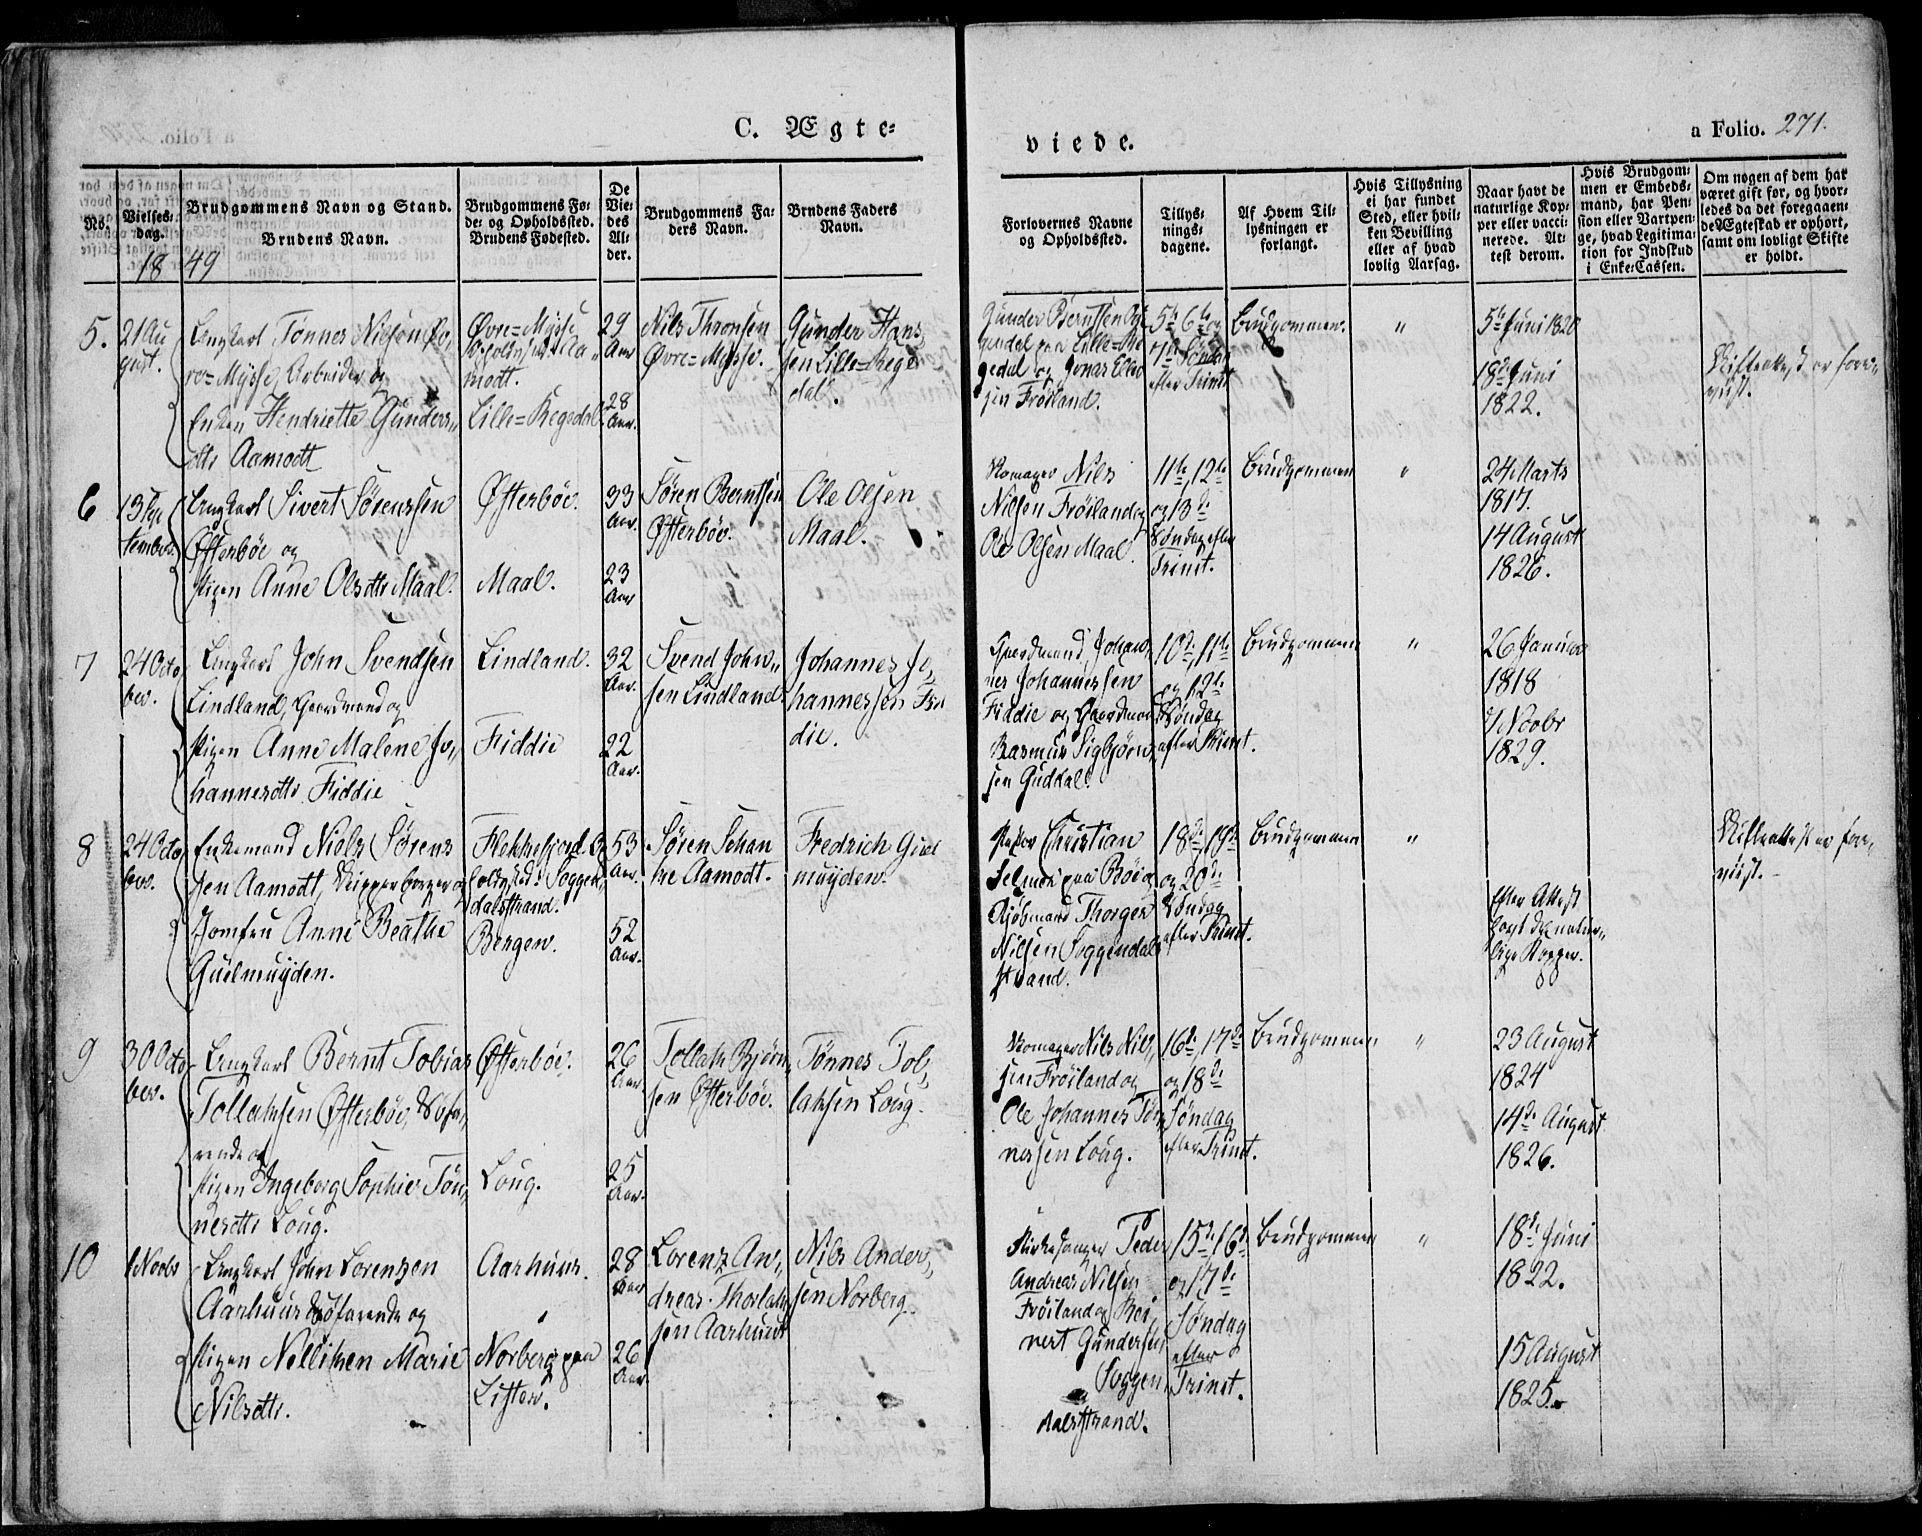 C. Ægte-
viede.
a Folio. 271.
No.
Vielses-
dag.
Brudgommens Navn og Stand.
Brudens Navn.
Brudgommens Fø-
de- og Opholdssted.
Brudens Fødested.
De
Vie-
des
Al-
der.
Brudgommens Fa-
ders Navn.
Brudens Faders
Navn.
Forlovernes Navne
og Opholdssted.
Tillys-
nings-
dagene.
Af Hvem Til-
lysningen er
forlangt.
Hvis Tillysning
ei har fundet
Sted, eller hvil-
ken Bevilling
eller af hvad
lovlig Aarsag.
Naar havt de
naturlige Kop-
per eller vacci-
nerede. At-
test derom.
Hvis Brudgom-
men er Embeds-
mand, har Pen-
sion eller Vartpen-
ge, hvad Legitima-
tion for Indskud
i Enke-Cassen.
Om nogen af dem har
været gift før, og hvor-
ledes da det foregaaen-
de Ægteskab er ophørt,
samt om lovligt Skifte
er holdt.
1849
5.
21 Au
gust.
Ungkarl Tønnes Nielsen Øv,
re=Mysse, Arbeider og
Enken Hendriette Gunders,,
dtr Aamodt
Øvre=Mysse
Opholdssted Aa-
modt.
Lille=Regedal
29
Aar
28
Aar.
Nils Thronsen
Øvre=Mysse.
Gunder Hans,
sen Lille=Rege
dal.
Gunder Berntsen Re
gedal paa Lille=Re
gedal og Jonas Elle
sen Frøiland.
5te 6te og
7de Søndag
efter Trinit
Brudgommen.
"
5te Juni 1820
18de Juni
1822.
Skifteattest er fore,
viist.
6
13 Sep
tember.
Ungkarl Sivert Sørenssen
Østerbøe og
Pigen Anne Olsdtr Maal.
Østerbøe.
Maal.
33
Aar.
23
Aar
Søren Berntsen
Østerbøe.
Ole Olsen
Maal.
Nils
Nilsen Frøiland og
Ole Olsen Maal.
11te, 12te
og 13de
Søndag efter
Trinit.
Brudgommen
"
24 Marts
1817.
14 August
1826.
7
24 Octo
ber.
Ungkarl John Svendsen
Lindland, Gaardmand og
Pigen Anne Malene Jo,,
hannesdtr Fiddie
Lindland.
Fiddie
32
Aar.
22
Aar.
Svend John,,
sen Lindland.
Johannes Jo,
hannessen Fid
die.
Gaardmand Johan,
nes Johannessen
Fiddie og Gaardmand
Rasmus Sigbjørn,
sen Guddal.
10de, 11te
og 12te
Søndag
efter Trinit.
Brudgommen
"
26 Januar
1818
Novbr
1829.
8
24 Octo
ber.
Enkemand Niels Sørens
sen Aamodt, Skipperborger og
Jomfru Anne Beathe
Guelmuyden.
Flekkefjord. Op
holdssted: Soggen,
dalsstrand.
Bergen.
53
Aar.
52
Aar.
Søren Schan
ke Aamodt.
Fredrich Guel
muyden.
Christian
Selmer paa Bøe og
Kjøbmand Thorger
Nilsen Soggendals
strand.
18de, 19de
og 20de
Søndag
efter Trinit.
Brudgommen
"
Efter Attest
havt de natur,,
lige Kopper.
Skifteattest er fore,
viist.
9
30 Octo
ber.
Ungkarl Bernt Tobias
Tollaksen Østerbøe, Søfa,
rende og
Pigen Ingeborg Sophie Tøn,
nesdtr Loug.
Østerbøe.
Loug.
26
Aar.
25
Aar.
Tollak Bjørn,
sen Østerbøe.
Tønnes Tol,
laksen Loug.
Nils Nil,
sen Frøiland og
Ole Johannes Tøn,
nessen Loug.
16de, 17de
og 18de
Søndag
efter Trinit.
Brudgommen
"
23 August
1824
14de August
1826.
10
1 Novbr
Ungkarl John Lorenzen
Aarhuus Søfarende og
Pigen Nellikken Marie
Nilsdtr.
Aarhuus.
Norberg paa
Lister.
28
Aar
26
Aar.
Lorenz An,
dreas Thorlak
sen Aarhuus
Nils Ander,
sen Norberg.
Kirkesanger Peder
Andreas Nilsen
Frøiland og Rei,
nert Gundersen,
Soggen,
dalsstrand.
15de, 16de
og 17de
Søndag
efter
Trinit.
Brudgommen
"
18de Juni
1822.
15 August
1825.